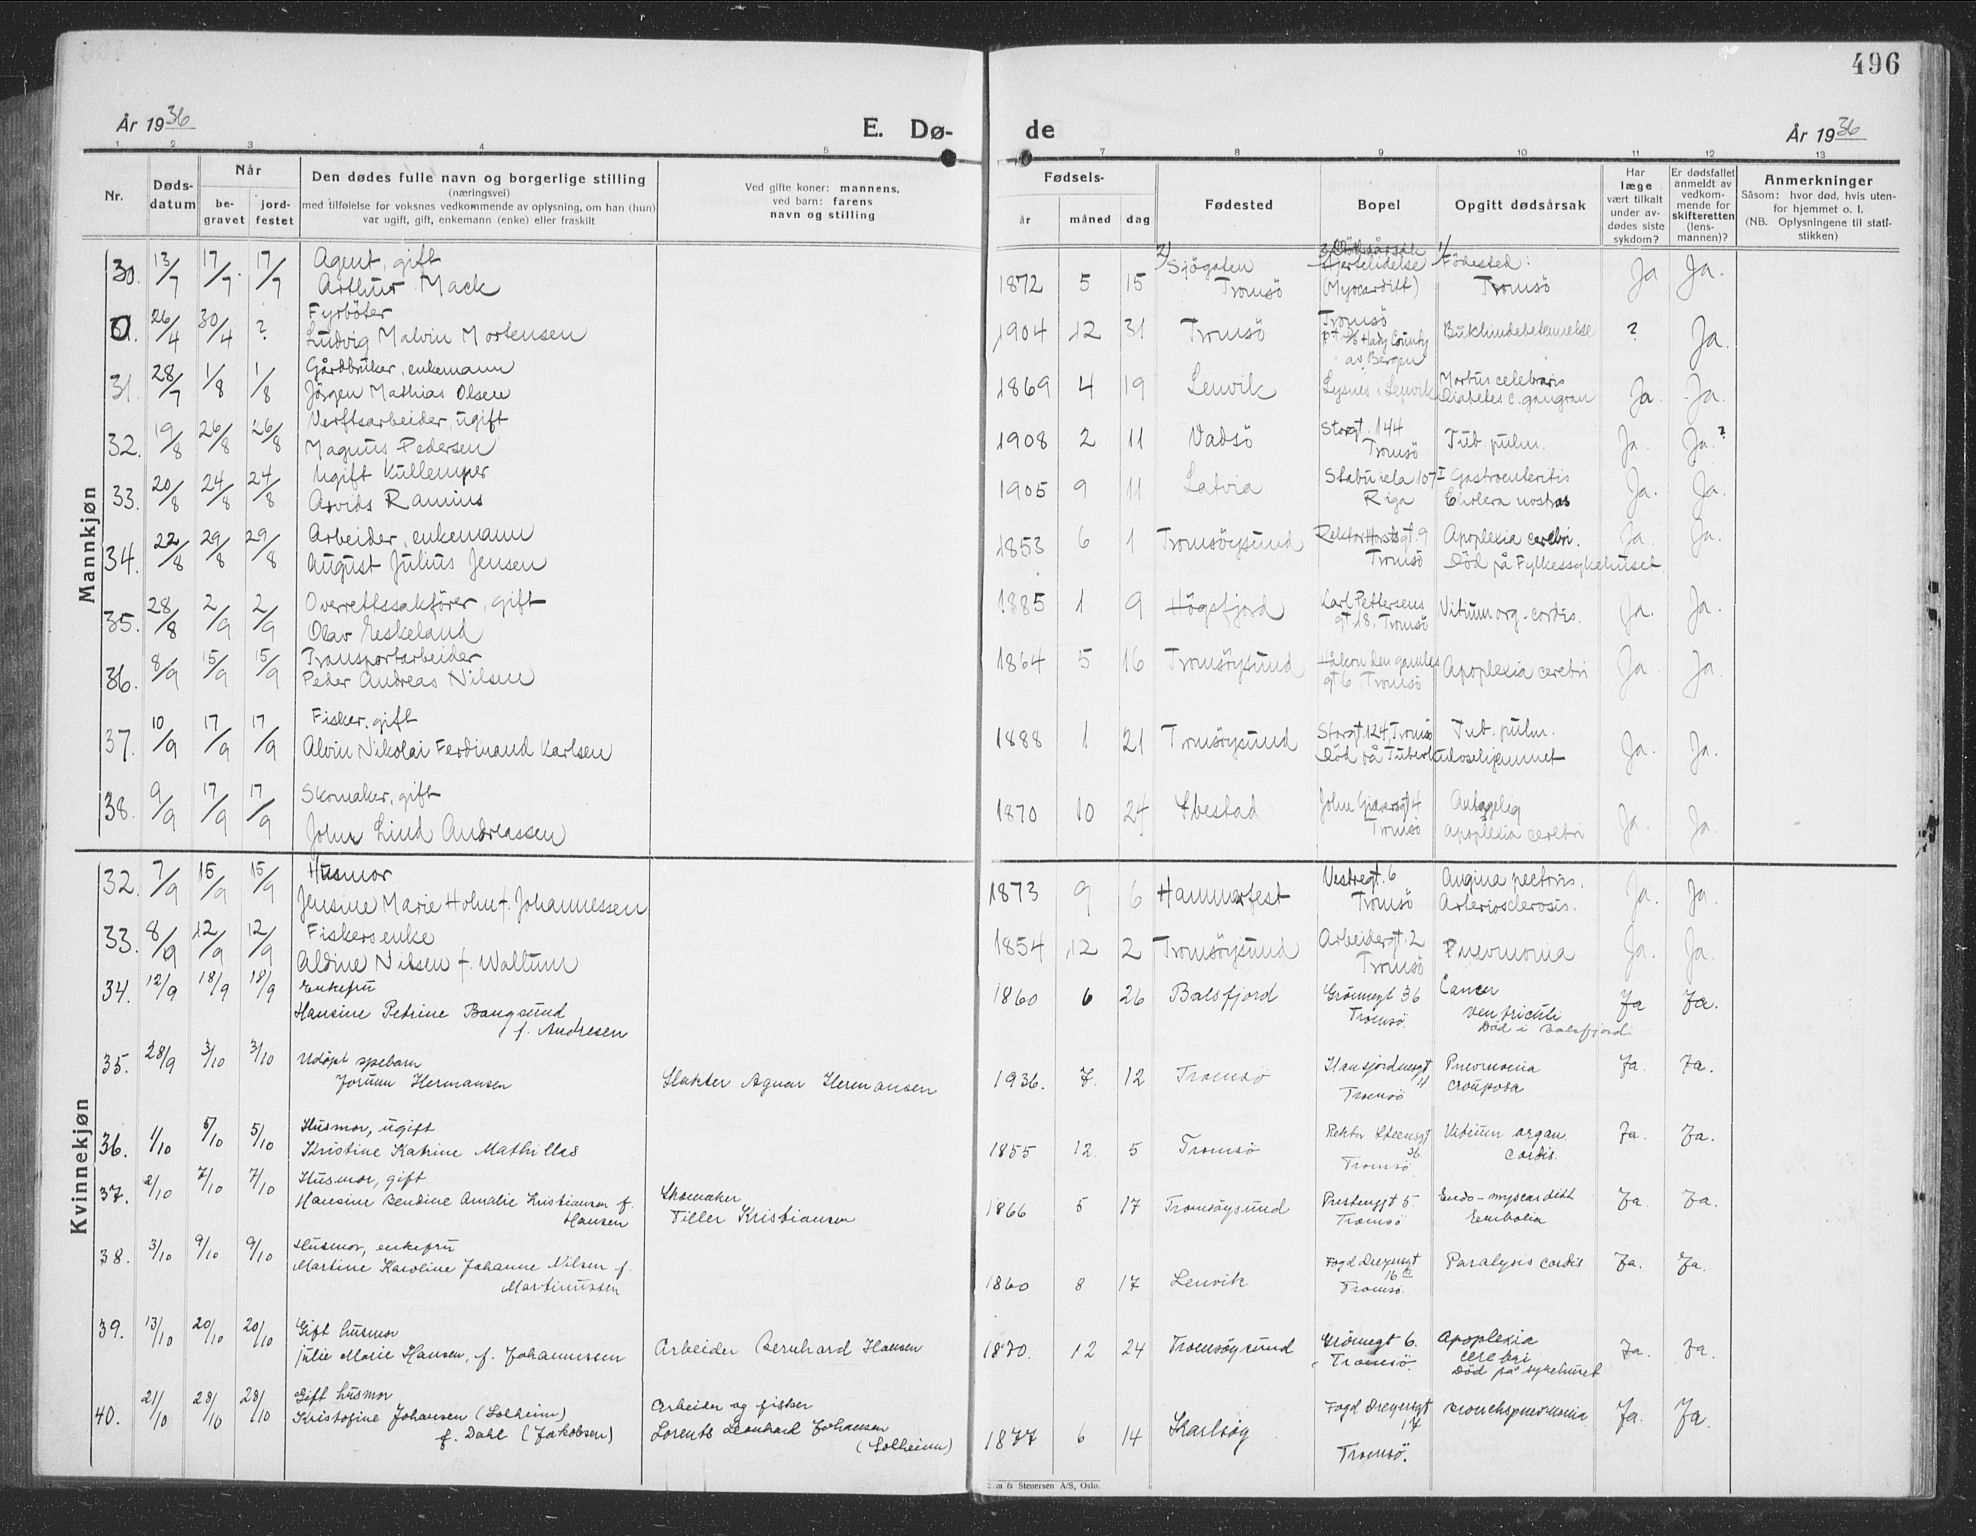 496
År 1936
E. Dø-
de
År 1936
1 2 3 4 5
7 8 9 10 11 12 13
Nr.
Dødsdatum
Når
begravet
jordfestet
Den dødes fulle navn og borgerlige stilling
(næringsvei)
med tilføielse for voksnes vedkommende av oplysning, om han (hun)
var ugift, gift, enkemann (enke) eller fraskilt
Ved gifte koner: mannens,
ved barn: farens
navn og stilling
Fødsels-
år måned dag
Fødested
Bopel
Opgitt dødsårsak
Har
læge
vært tilkalt
under av-
dødes siste
sykdom?
Er dødsfallet
anmeldt av
vedkom-
mende for
skifteretten
(lens-
mannen)?
Anmerkninger
Såsom: hvor død, hvis uten-
for hjemmet o. l.
(NB. Oplysningene til stati-
stikken)
Mannkjøn
30. 13/7 17/7 17/7 Agent, gift
Arthur Mack
1872 5 15 2/ Sjøgaten Tromsö 3/ Dödsårsak Hjertelidelse (Myocarditt) 1/ Födested: Tromsö Ja Ja.
0. 26/4 30/4 ? Fyrböter
Ludvig Malvin Mortensen
1904 12 31 Tromsö Tromsö p.t. D/S Hady County av Bergen Bukhindebetennelse ? Ja.
31. 28/7 1/8 1/8 Gårdbruker, enkemann
Jörgen Mathias Olsen
1869 4 19 Lenvik Lysnes i Lenvik Morbus celebraris Diabetes c. gangren Ja. Ja.
32. 19/8 26/8 26/8 Verftsarbeider, ugift
Magnus Pedersen
1908 2 11 Vadsö Storgt. 144 Tromsö Tub. pulm. Ja. Ja.?
33. 20/8 24/8 24/8 Ugift Kullemper
Arvids Ramins
1905 9 11 Latvia Stabu iela 107 I Riga Gastroenteritis Cholera nostras Ja. Ja.
34. 22/8 29/8 29/8 Arbeider, enkemann
August Julius Jensen
1853 6 1 Tromsöysund Rektor Horstsgt. 9 Tromsö Apoplexia cerebri. Död på Fylkessykehuset. Ja. Ja.
35. 28/8 2/9 2/9 Overrettssakförer, gift
Olav Eskeland
1885 1 9 Högsfjord Karl Pettersens gt. 18, Tromsö Vitium org. cordis. Ja. Ja.
36. 8/9 15/9 15/9 Transportarbeider
Peder Andreas Nilsen
1864 5 16 Tromsöysund Håkon den gamles gt 6, Tromsö Apoplexia cerebri Ja. Ja.
37. 10/9 17/9 17/9 Fisker, gift
Alvin Nikolai Ferdinand Karlsen
1888 1 21 Tromsöysund Storgt. 124, Tromsö Tub. pulm. Ja. Ja.
Död på Tuberkuloselijemmet
38. 9/9 17/9 17/9 Skomaker, gift
John Lind Andreassen
1870 10 24 Ibestad John Giæversgt 4 Tromsö Antagelig apoplexia cerebri Ja. Ja.
Kvinnekjøn
32. 7/9 15/9 15/9 Husmor
Jensine Marie Holm f. Johannessen
1873 9 6 Hammerfest Vestregt. 6 Tromsö Angina pectoris. Arteriosclerosis. Ja. Ja.
33. 8/9 12/9 12/9 Fiskers enke
Aldine Nilsen f. Waltum
1854 12 2 Tromsöysund Arbeidergt. 2 Tromsö Pneumonia Ja. Ja.
34. 12/9 18/9 18/9 Enkefru
Hansine Petrine Bangsund
f. Andresen
1860 6 26 Balsfjord Grönnegt 36 Tromsö. Cancer ventrickli Död i Balsfjord Ja Ja.
35. 28/9 3/10 3/10 Udöpt spebarn
Jorunn Hermansen
Slakter Agnar Hermansen
1936. 7. 12 Tromsö Hansjordnesgt 4 Tromsö Pneumonia crouposa Ja. Ja.
36. 1/10 5/10 5/10 Husmor, ugift
Kristine Katrine Mathillas
1855 12. 5 Tromsö Rektor Steensgt 36. Tromsö. Vitium organ. cordis. Ja. Ja.
37. 2/10 7/10 7/10 Husmor, gift
Hansine Bendine Amalie Kristiansen f. Hansen
Skomaker
Tiller Kristiansen
1866 5 17 Tromsöysund Prestenggt 5. Tromsö Endo-myocarditt Embolia Ja. Ja.
38. 3/10 9/10 9/10 Husmor, enkefru
Martine Karoline Johanne Nilsen f.
Martinussen
1860 8 17 Lenvik Fogd Dreyersgt 16 Tromsö. Paralysis cordis Ja. Ja.
39. 13/10 20/10 20/10 Gift husmor
Julie Marie Hansen, f. Johannessen
Arbeider Bernhard Hansen
1870. 12 24 Tromsöysund Grönnegt 6. Tromsö. Apoplexia cerebri Död på sykehuset Ja. Ja.
40. 21/10 28/10 28/10 Gift husmor
Kristofine Johansen (Solheim)
f. Dahl (Jakobsen)
Arbeider og fisker
Lorents Leonhard Johansen
(Solheim)
1877 6 14 Karlsöy Fogd Dreyersgt 17 Tromsö. Bronchopneumonia Ja. Ja.
Sem & Stenersen A/S, Oslo.